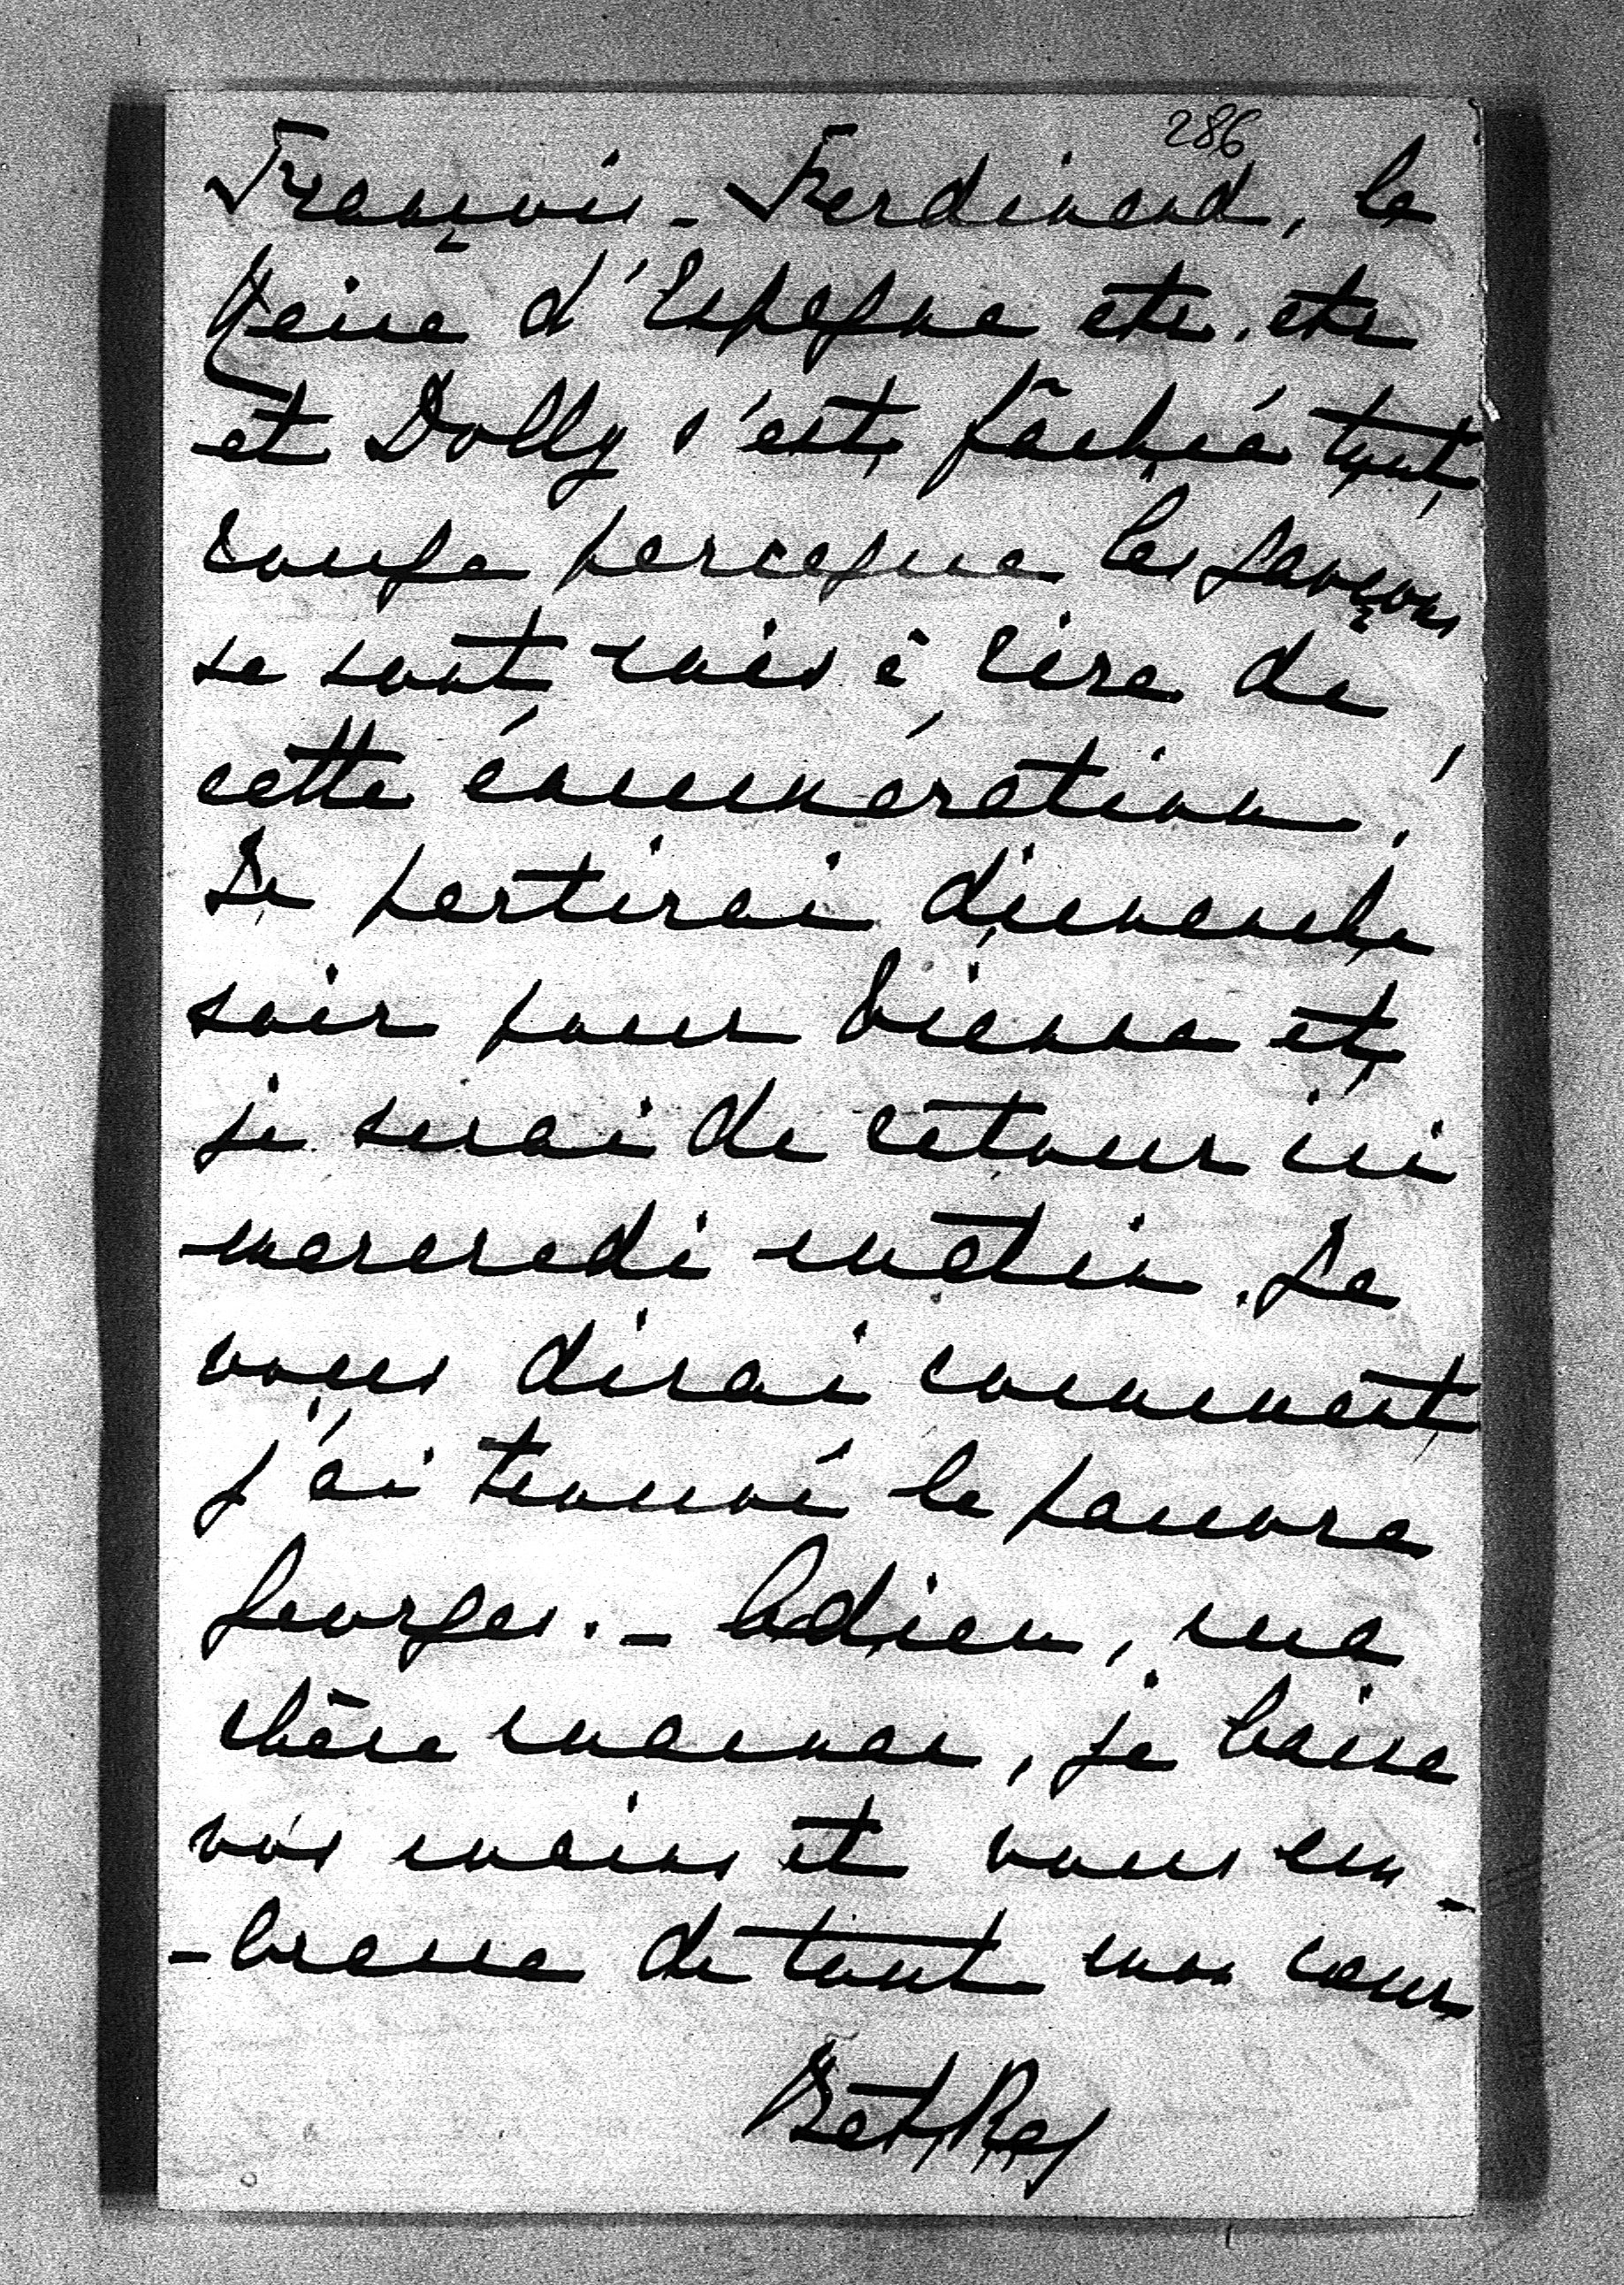 286
François-Ferdinand, la
Reine d'Espagne etc. etc
et Dolly s'est fâchée tout
rouge parceque les garçons
se sont mis à rire de
cette énumération.
Je partirai dimanche
soir pour Vienne et
je serai de retour ici
mercredi matin. Je
vous dirai comment
j'ai trouvé le pauvre
Georges. – Adieu, ma
chère maman, je baise
vos mains et vous em-
-brasse de tout mon cœur